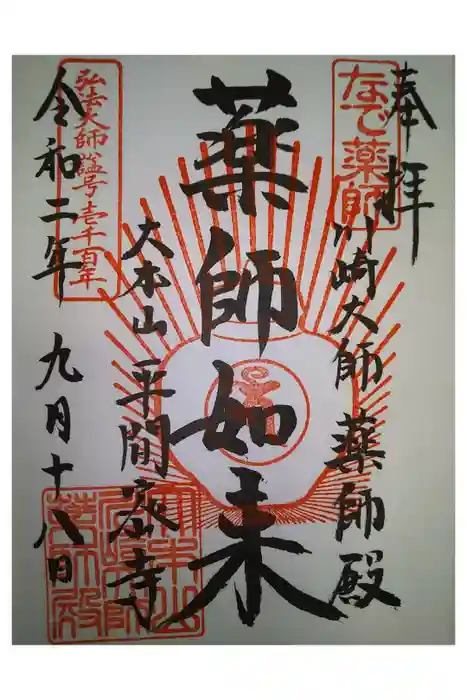 奉拝
なで薬師
川崎大師 薬師殿
薬師如来
大本山 平間密寺
弘法大師諡号壱千百年
令和二年 九月十八日